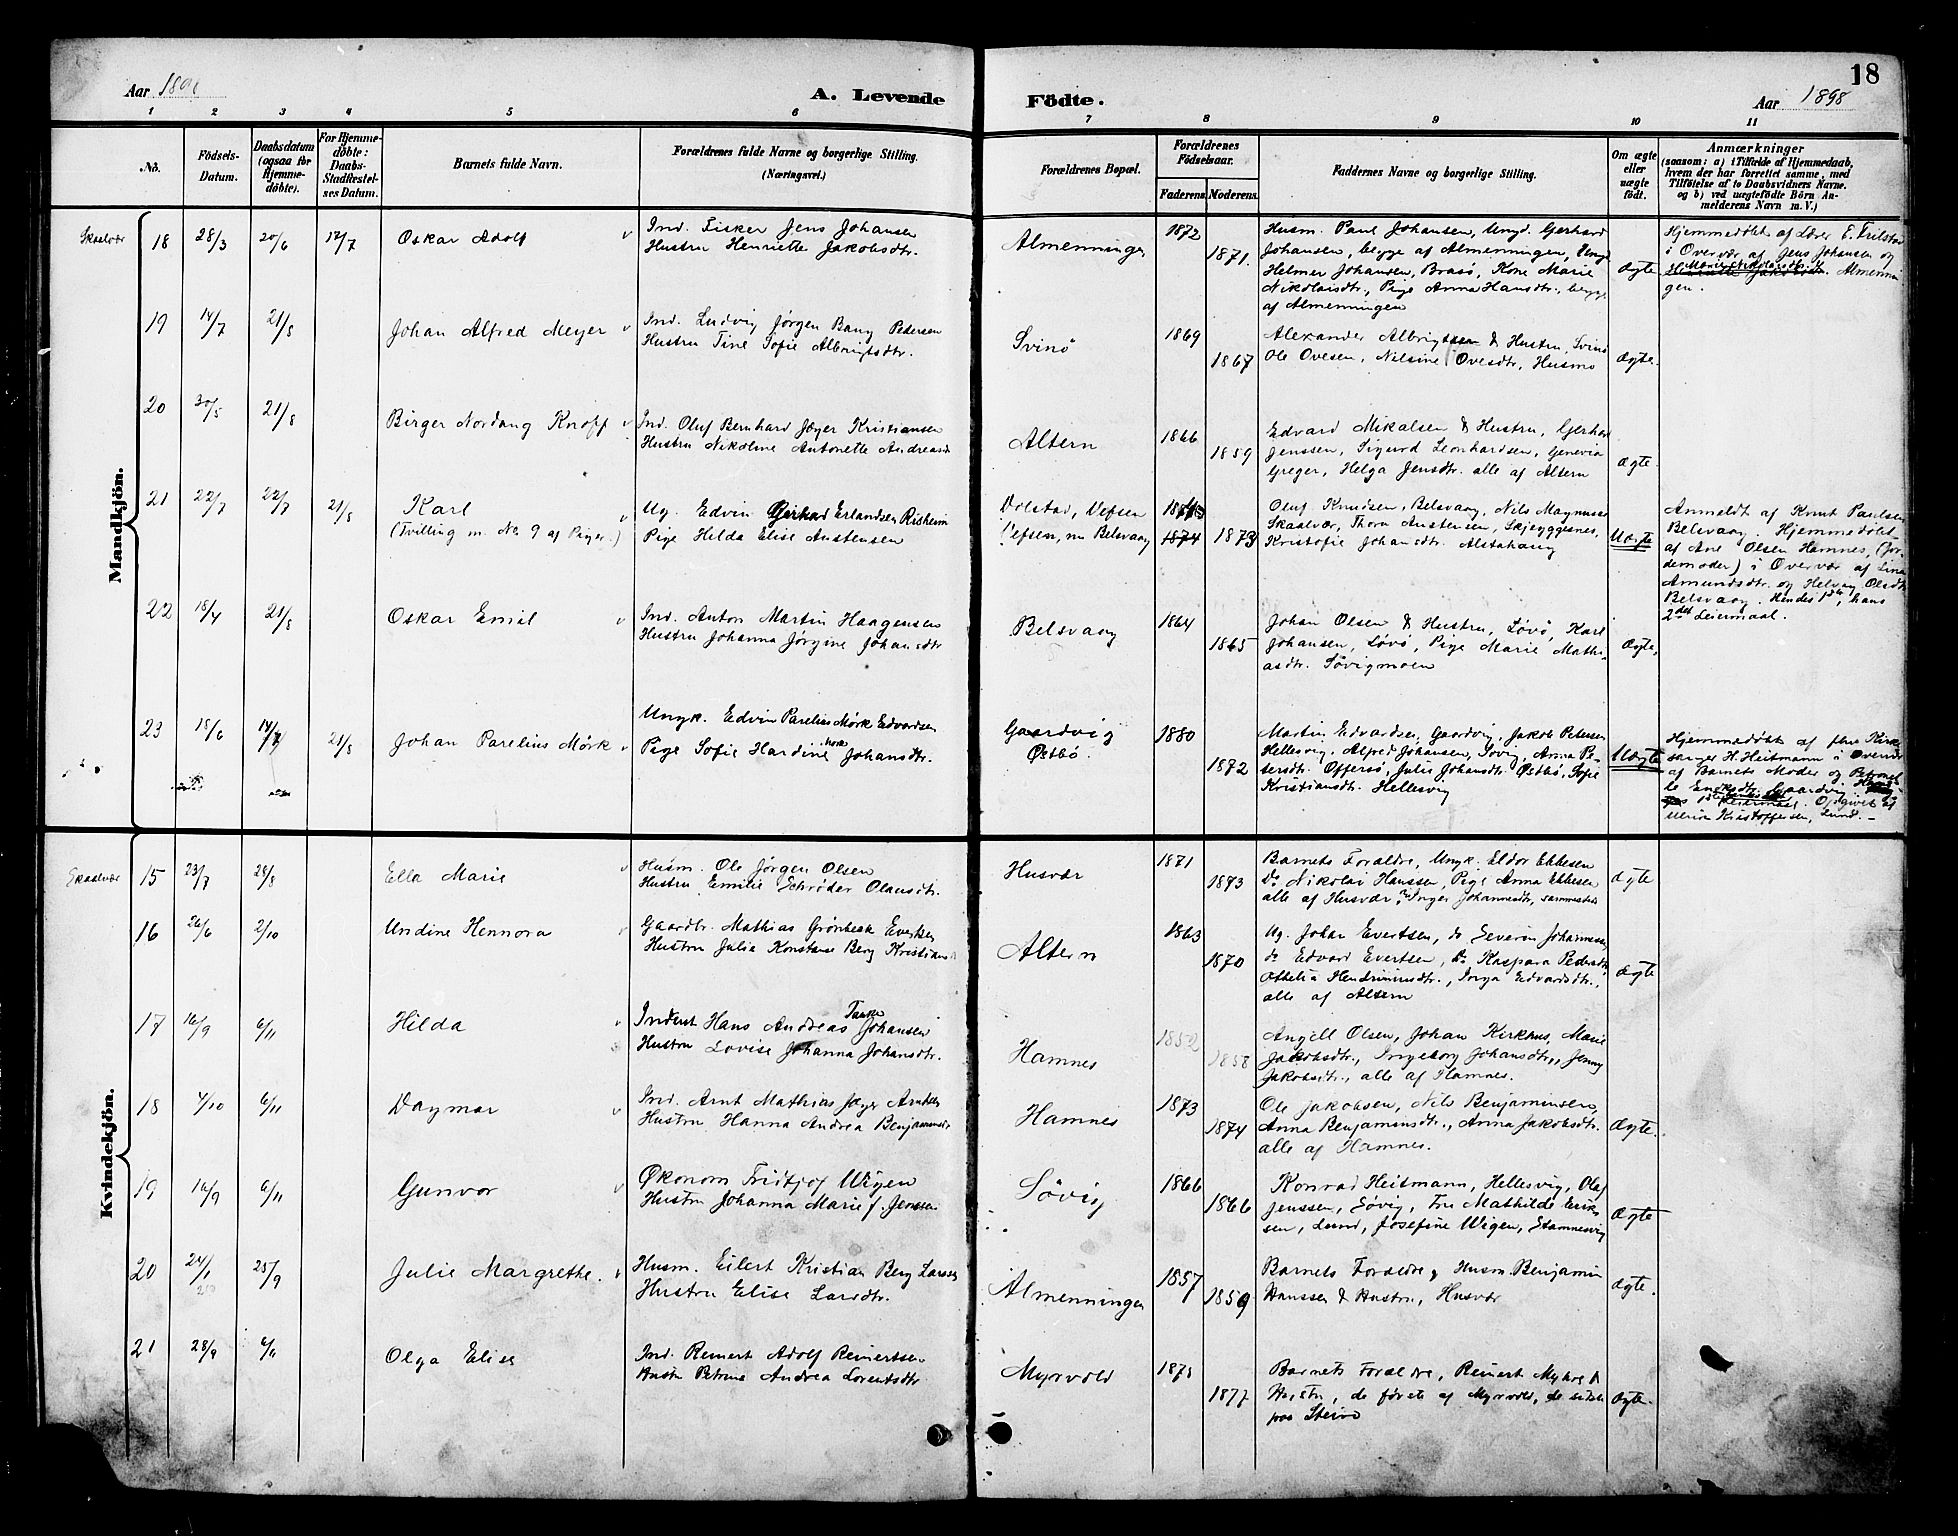 18
Aar 1898 A. Levende Födte. Aar 1898
1 2 3 4 5 6 7 8 9 10 11
No. Födsels-Datum. Daabsdatum (ogsaa for Hjemmedöbte). For Hjemmedöbte: Daabs-Stadfæstelses Datum. Barnets fulde Navn. Forældrenes fulde Navne og borgerlige Stilling. (Næringsvei.) Forældrenes Bopæl. Forældrenes Födselsaar. Faderens. Moderens. Faddernes Navne og borgerlige Stilling. Om ægte eller uægte födt. Anmærkninger (saasom: a) i Tilfælde af Hjemmedaab, hvem der har forrettet samme, med Tilföielse af to Daabsvidners Navne, og b) ved uægtefödte Börn Anmelderens Navn m. V.)
Mandkjön.
Skaalvær 18 28/3 20/6 17/7 Oskar Adolf
Ind. Fisker Jens Johansen
Hustru Henriette Jakobsdtr.
Almenningen 1872 1871.
Husm. Paul Johansen, Ungd. Gerhard
Johansen, begge af Almenningen, Ungk
Helmer Johansen, Brasø, Kone Marie
Nikolaisdtr., Pige Anna Hansdtr., begge
af Almenningen
Ægte
Hjemmedøbt af Lærer E. Trilstad
i Overvær af Jens Johansen og
Marie Nikolaisdtr. Almennin
gen.
19 14/7 21/8 Johan Alfred Meyer
Ind. Ludvig Jørgen Bang Pedersen
Hustru Tine Sofie Albrigtsdtr.
Svinø 1869 1867
Alexander Albrigtsen & Hustru, Svinø
Ole Ovesen, Nilsine Ovesdtr, Husmo
Ægte.
20 30/5 21/8 Birger Nordang Knoff
Ind. Oluf Bernhard Jæger Kristiansen
Hustru Nikoline Antonette Andreasd
Altern 1866 1859
Edvard Mikalsen & Hustru, Gerhard
Jenssen, Sigurd Leonhardsen, Genevia
Greger, Helga Jensdtr. alle af Altern
Ægte.
21 22/7 22/7 21/8 Karl
(Tvilling m. No 9 af Piger.)
Ug. Edvin Gerhard Erlandsen Risheim
Pige Hilda Elise Austensen
Dolstad, Vefsen
Vefsen, nu Belsvaag
1874 1873
Oluf Knudsen, Belsvaag, Nils Magnusen
Skaalvær, Thora Austensen, Skjeggesnes,
Kristofie Johansdtr. Alstahaug
Uægte
Anmeldt af Knut Paulsen
Belsvaag. Hjemmedøbt
af Ane Olsen Hamnes, (Jor
demoder) i Overvær af Lina
Amundsdtr. og Helvag Olsdtr
Belsvaag. Hendes 1ste, hans
2det Leiermaal.
22 18/4 21/8 Oskar Emil
Ind. Anton Martin Haagensen
Hustru Johanna Jørgine Johansdtr
Belsvaag 1864 1865
Johan Olsen & Hustru, Løvø, Karl
Johansen, Løvø, Pige Marie Mathi-
asdtr. Søvigmoen
Ægte,
23 18/6 14/7 21/8 Johan Parelius Mørk
Ungk. Edvin Parelius Mørk Edvardsen
Pige Sofie Hardine Johansdtr.
Gaardvig
Østbø.
1880 1872
Martin Edvardsen, Gaardvig, Jakob Petersen
Hellesvig, Alfred Johansen, Søvig, Anna Pe-
tersdtr. Offersø, Julie Johansdtr. Østbø, Sofie
Kristiansdtr. Hellesvig
Uægte
Hjemmedøbt af fhv. Kirke
sanger H. Heitmann i Overvær
af Barnets Moder og Petronel
le Gaardvig
Leiermaal. Opgivet af
Kristoffersen, Lund.
Kvindekjön.
Skaalvær 15 23/7 28/8 Ella Marie
Husm. Ole Jørgen Olsen
Hustru Emilie Schrøder Olausdtr.
Husvær 1871 1873
Barnets Forældre, Ungk. Eldor Ebbesen
Do Nikolai Hanssen, Pige Anna Ebbesen
alle af Husvær, Inger Johannesdtr, sammesteds
Ægte
16 26/6 2/10 Undine Hennora
Gaardbr. Mathias Grønbech Evertsen
Hustru Julia Konstanse Berg Kristians
Altern 1863 1870
Ug. Johan Evertsen, do Severin Johannessen
do Edvard Evertsen, Do Kaspara Pedersdtr
Othelia Hendriniusdtr., Inga Edvardsdtr.,
alle af Altern
Ægte
17 16/9 6/11 Hilda
Inderst Hans Andreas Tanke Johansen
Hustru Lovise Johanna Johansdtr.
Hamnes 1852 1858
Angell Olsen, Johan Kirkhus, Marie
Jakobsdtr., Ingeborg Johansdtr., Jenny
Jakobsdtr., alle af Hamnes.
18 4/10 6/11 Dagmar
Ind. Arnt Mathias Jæger Arntsen
Hustru Hanna Andrea Benjaminsd
Hamnes 1873 1874
Ole Jakobsen, Nils Benjaminsen,
Anna Benjaminsdtr., Anna Jakobsdtr.
alle af Hamnes.
Ægte.
19 16/9 6/11 Gunvor
Økonom Fridtjof Wigen
Hustru Johanna Marie f. Jenssen
Søvig 1866 1866
Konrad Heitmann, Hellesvig, Olaf
Jenssen, Søvig, Fru Mathilde Erik
sen, Lund, Josefine Wigen, Stamnesvig
Ægte
20 24/1 25/9 Julie Margrethe.
Husm. Eilert Kristian Berg Larssen
Hustru Elise Larsdtr.
Almenningen 1857 1859
Barnets Forældre, Husm. Benjamin
Hanssen & Hustru, Husvær
Ægte.
21 28/9 6/11 Olga Elise
Ind. Reinert Adolf Reinertsen
Hustr Petrine Andrea Lorentsdtr
Myrvold 1871 1877
Barnets Forældre, Reinert & 
Hustr, de første af Myrvold, de sidste
paa Steinø
Ægte.